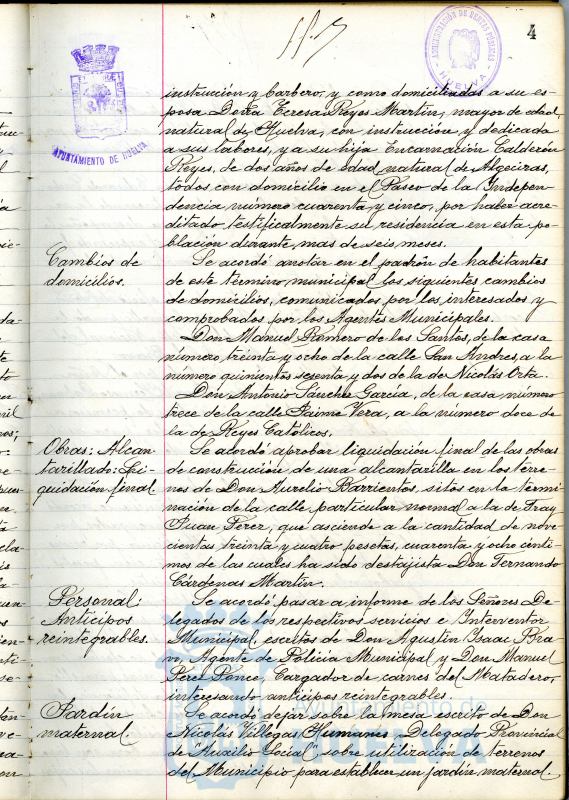 4
ADMINISTRACIÓN DE RENTAS PÚBLICAS
HUELVA
AYUNTAMIENTO DE HUELVA
instrucción y barbero, y como domiciliadas a su es-
posa Doña Teresa Reyes Martín, mayor de edad,
natural de Huelva, con instrucción y dedicada
a sus labores, y a su hija Encarnación Calderón
Reyes, de dos años de edad, natural de Algeciras,
todos con domicilio en el Paseo de la Indepen-
dencia número cuarenta y cinco, por haber acre-
ditado testificalmente su residencia en esta po-
blación durante mas de seis meses.
Cambios de
domicilios.
Se acordó anotar en el padrón de habitantes
de este término municipal los siguientes cambios
de domicilios, comunicados por los interesados y
comprobados por los Agentes Municipales.
Don Manuel Romero de los Santos, de la casa
número treinta y ocho de la calle San Andres, a la
número quinientos sesenta y dos de la de Nicolás Orta.
Don Antonio Sánchez García, de la casa número
trece de la calle Jaime Vera, a la número doce de
la de Reyes Católicos.
Obras: Alcan-
tarillado: Li-
quidación final
Se acordó aprobar liquidación final de las obras
de construcción de una alcantarilla en los terre-
nos de Don Aurelio Barrientos, sitos en la termi-
nación de la calle particular normal a la de Fray
Juan Pérez, que asciende a la cantidad de nove-
cientas treinta y cuatro pesetas, cuarenta y ocho cénti-
mos de las cuales ha sido destajista Don Fernando
Cárdenas Martín.
Personal:
Anticipos
reintegrables.
Se acordó pasar a informe de los Señores De-
legados de los respectivos servicios e Interventor
Municipal, escritos de Don Agustín Isaac Bra-
vo, Agente de Policía Municipal y Don Manuel
Pérez Ponce, Cargador de carnes del Matadero,
interesando anticipos reintegrables.
Jardín
maternal.
Se acordó dejar sobre la mesa escrito de Don
Nicolás Villegas Humanes, Delegado Provincial
de "Auxilio Social" sobre utilización de terrenos
del Municipio para establecer un jardín maternal.
Ayuntamiento de
HUELVA